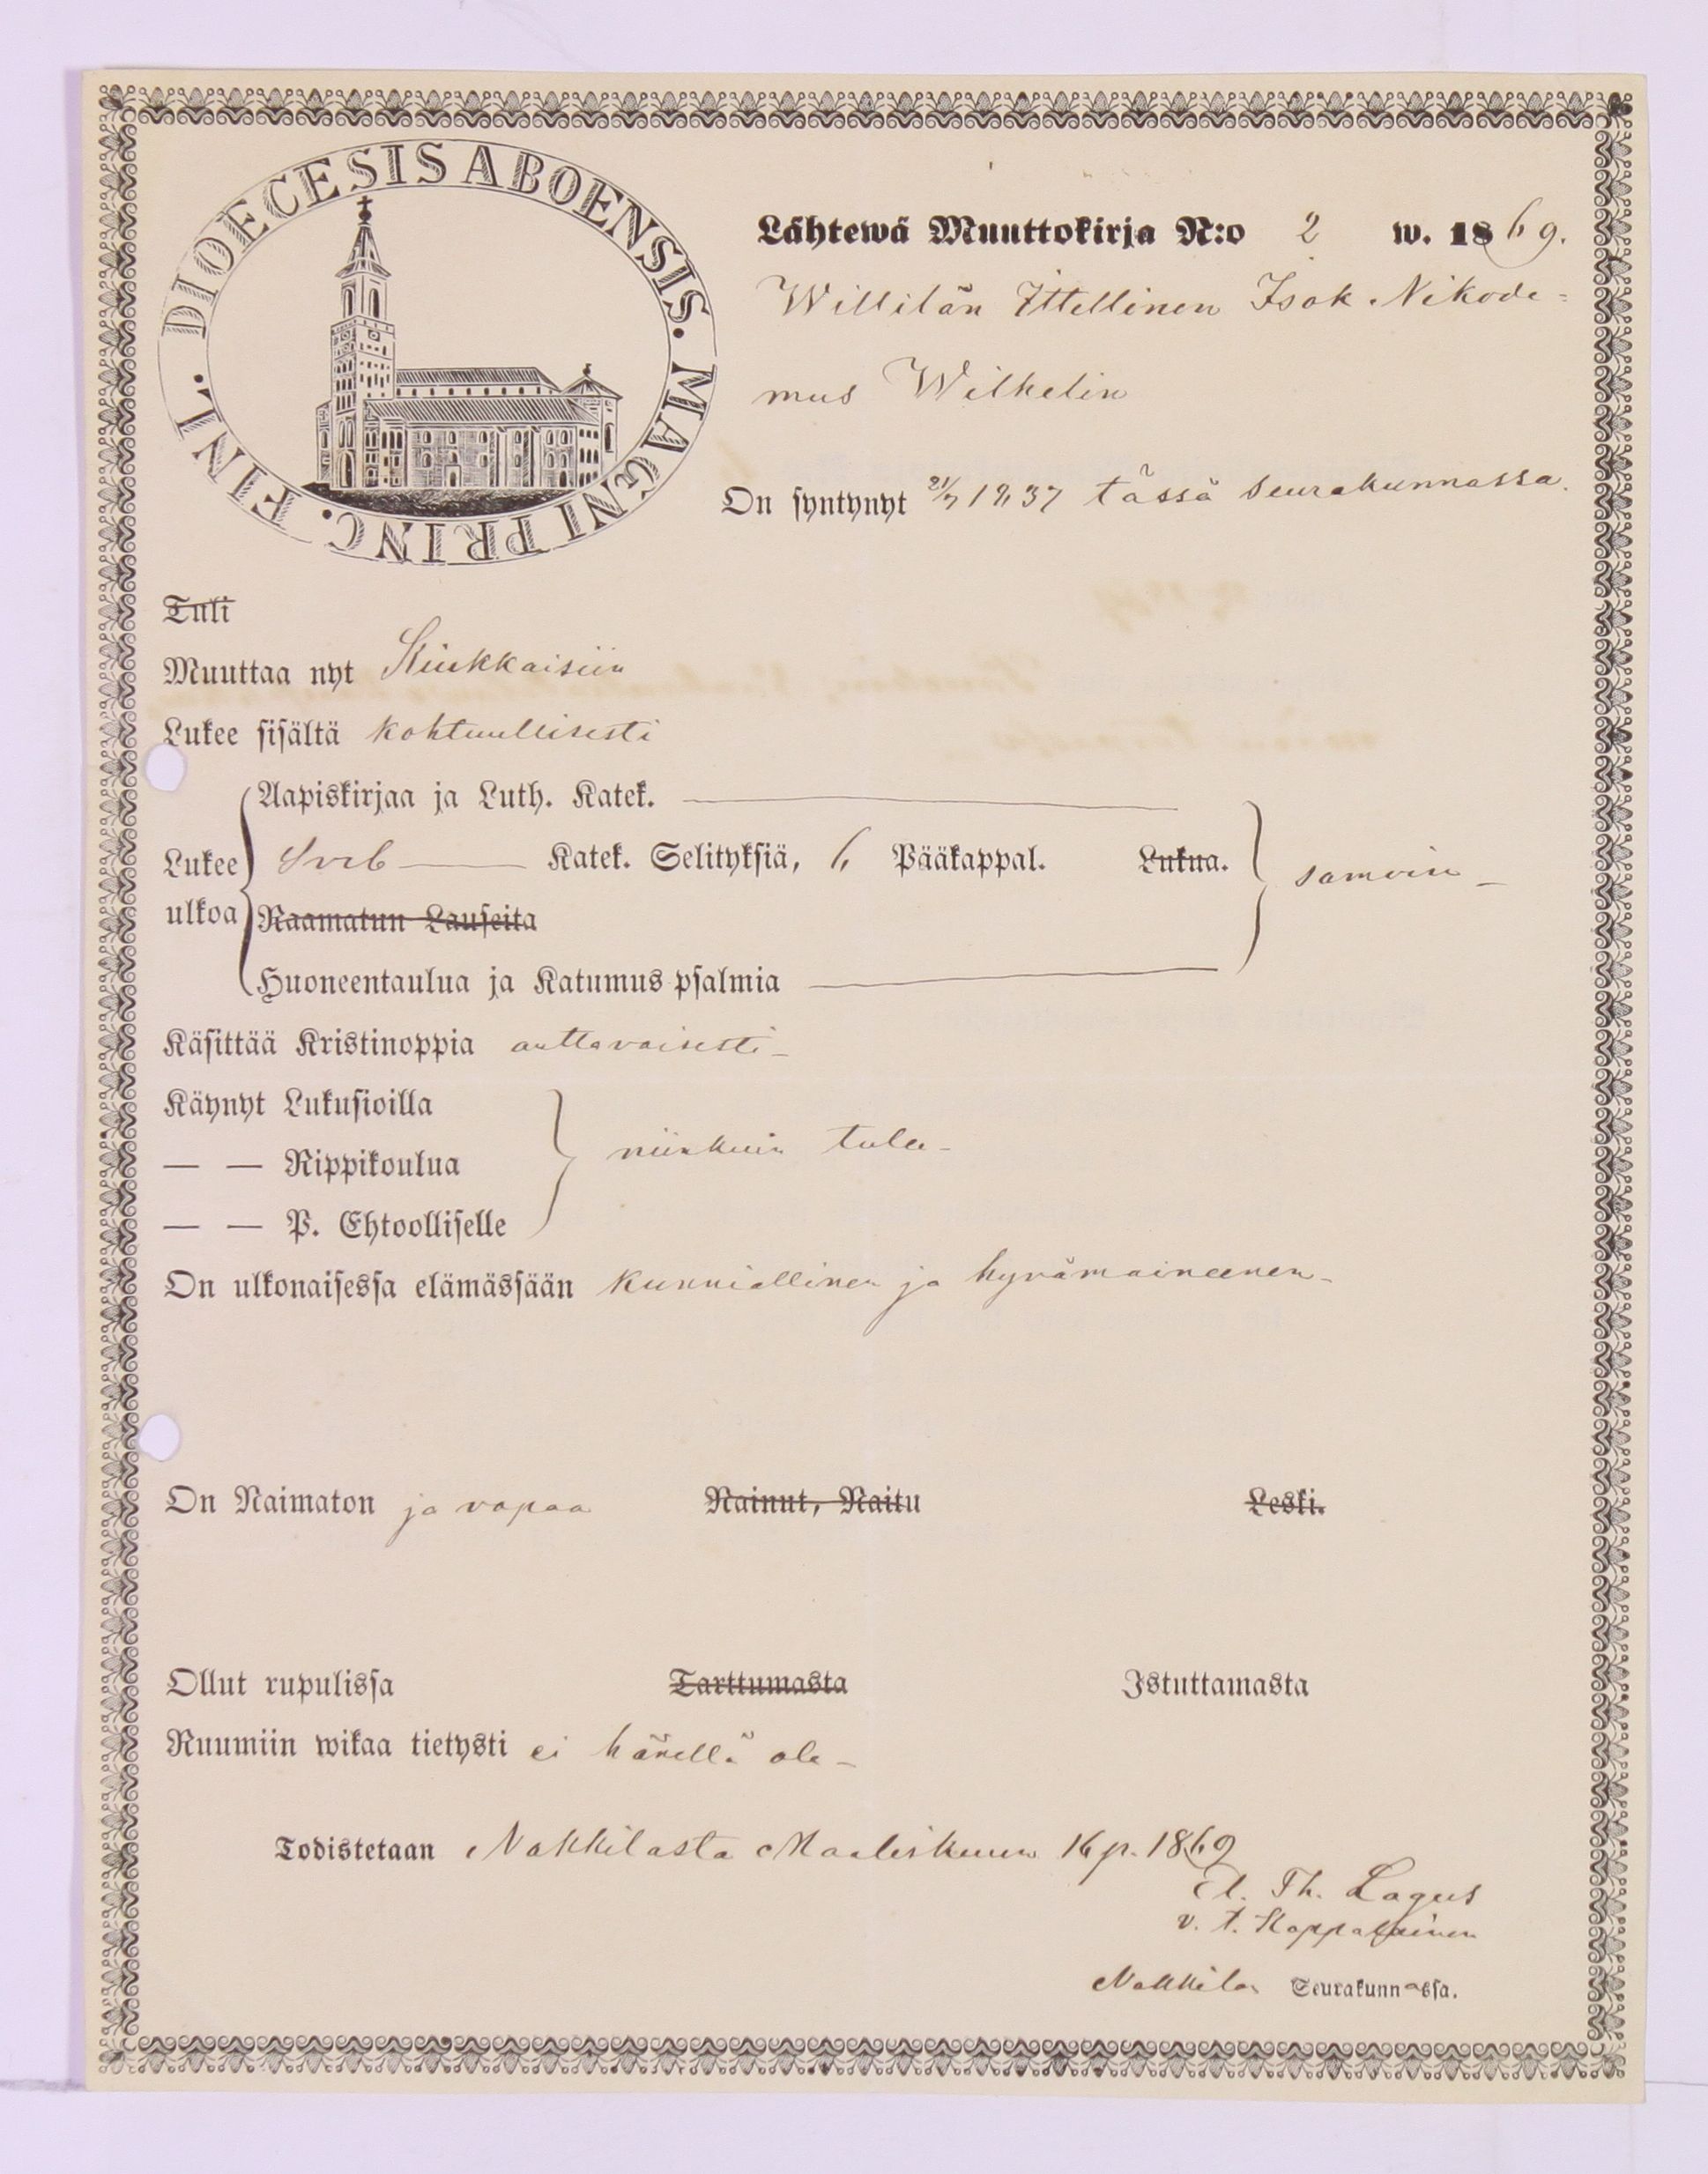 DIOECESIS ABOENSIS. MAGNI PRINC. FINL.
Lähtewä Muuttokirja N:o 2 w. 1869.
Willilän Ittellinen Isak Nikode=
mus Wilhelin
On syntynyt 21/7 1837 tässä Seurakunnassa.
Tuli
Muuttaa nyt Kiukkaisiin
Lukee sisältä kohtuullisesti
Aapiskirjaa ja Luth. Katek.
Lukee Sveb Katek. Selityksiä, 6 Pääkappal. Lukua. samoin
ulkoa Raamatun Lauseita
Huoneentaulua ja Katumus psalmia
Käsittää Kristinoppia auttavaisesti
Käynyt Lukusioilla
— — Rippikoulua niinkuin tulee
— — P. Ehtoolliselle
On ulkonaisessa elämässään kunniallinen ja hyvämaineenen
On Naimaton ja vapaa Nainut, Naitu Leski.
Ollut rupulissa Tarttumasta Istuttamasta
Ruumiin wikaa tietysti ei hänellä ole
Todistetaan Nakkilasta Maaliskuun 16 p. 1869
Th. Lagus
v. t. Kappalainen
Nakkilan Seurakunnassa.